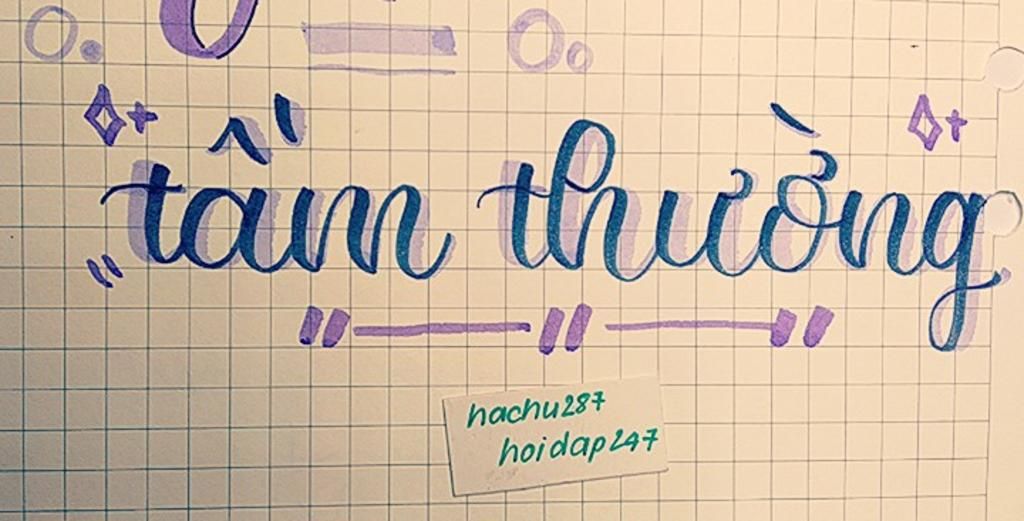 tầm thường
hachu287
hoidap247